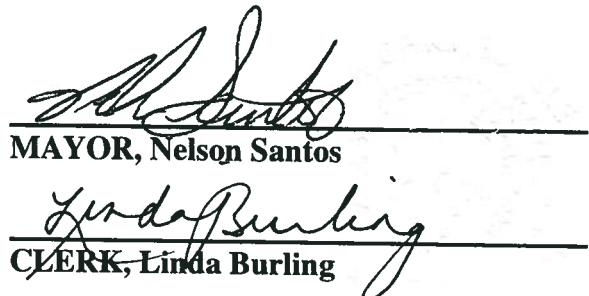 Nelson Santos
MAYOR, Nelson Santos
Linda Burling
CLERK, Linda Burling